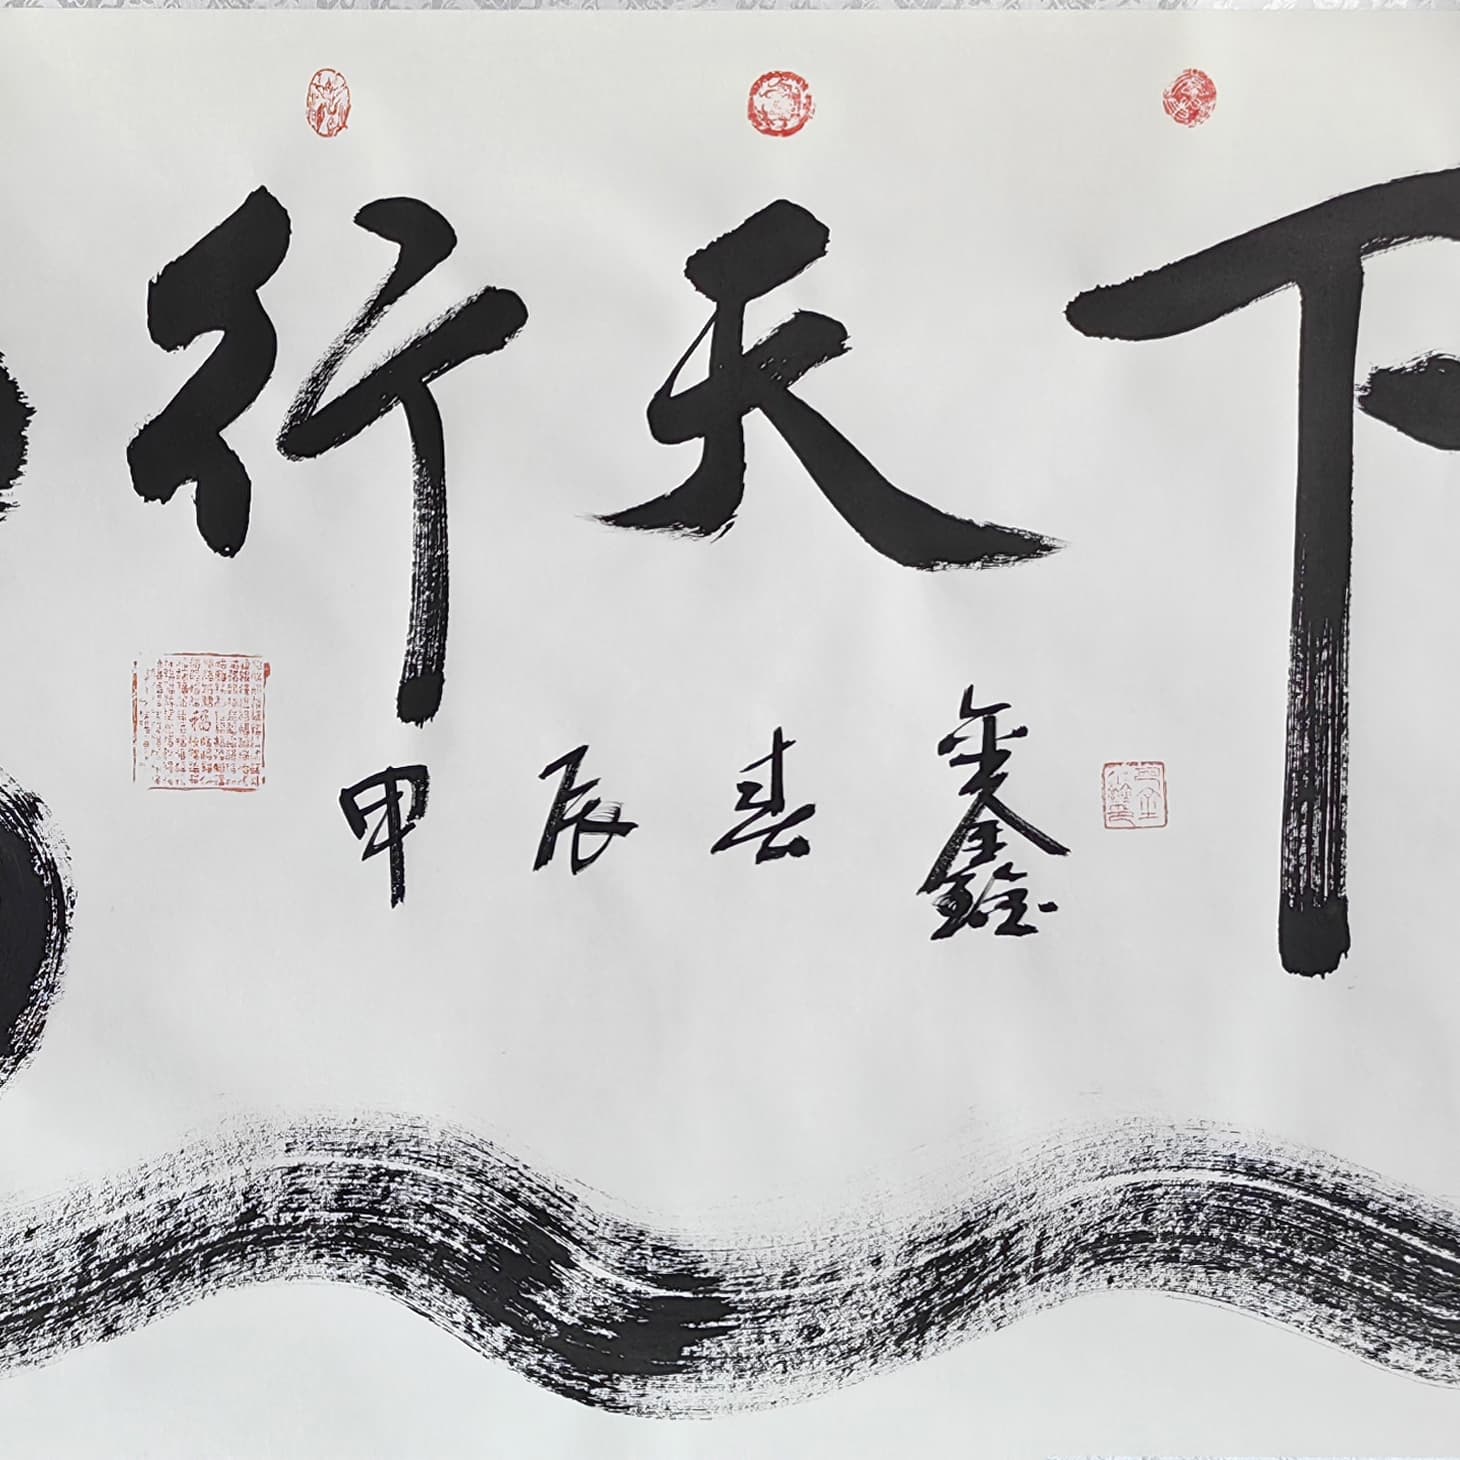 行天下
甲辰春 鑫
福